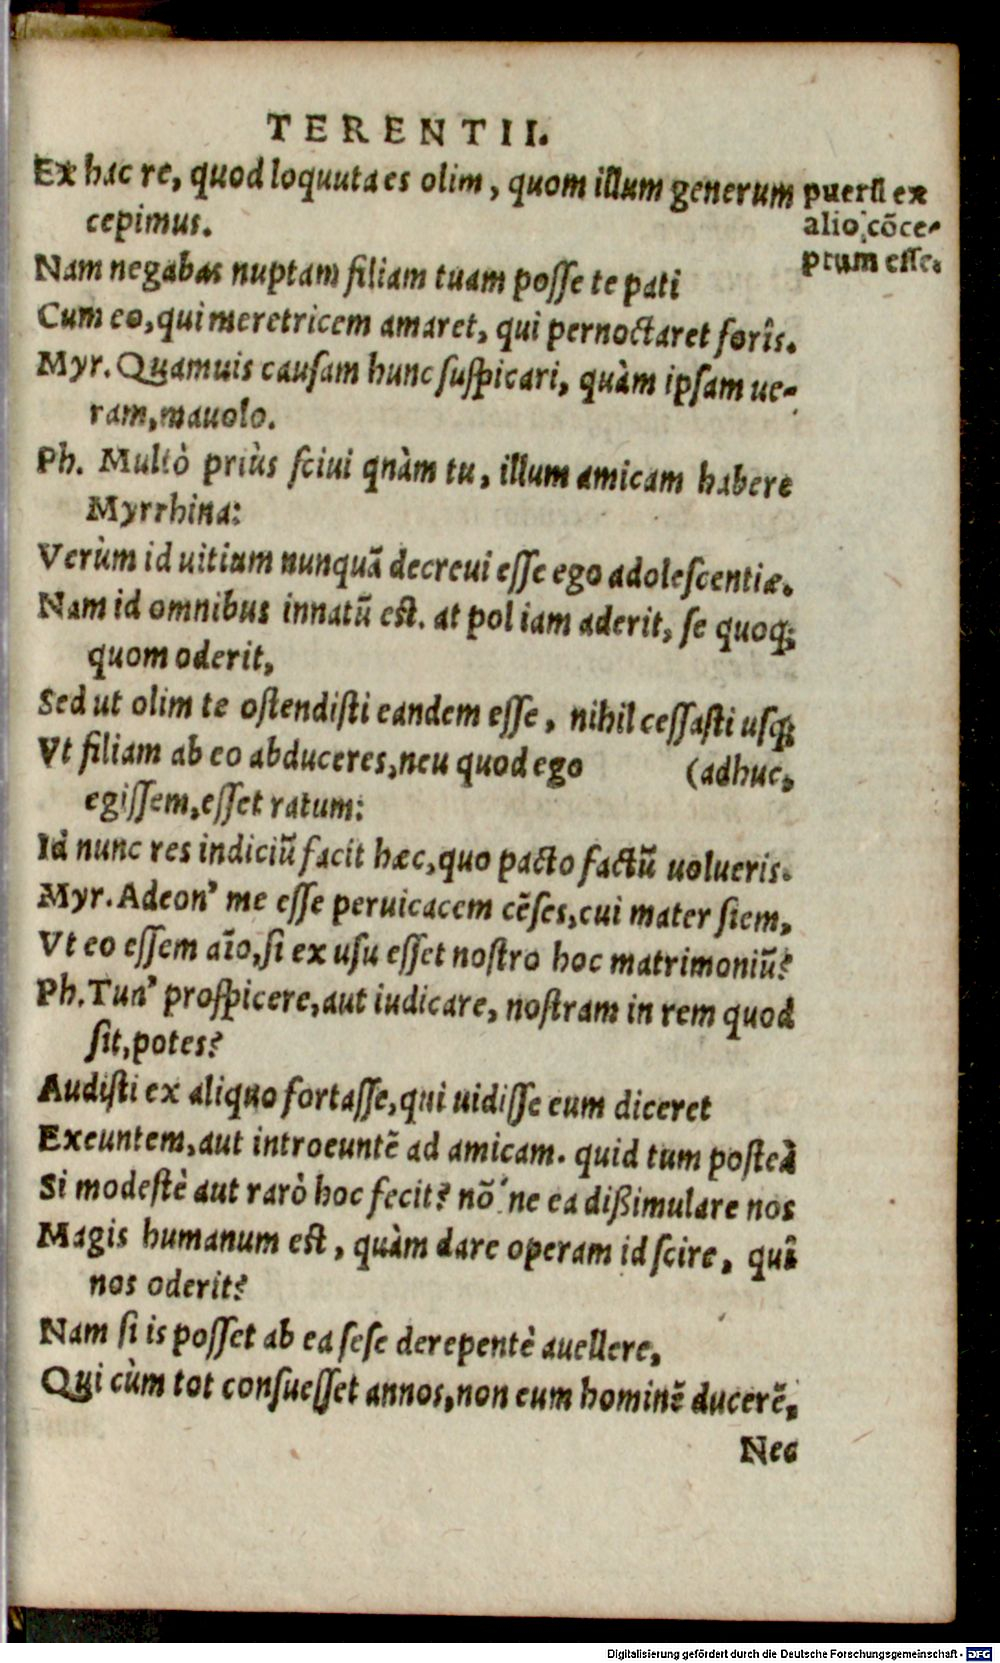 TERENTII.
Ex hac re, quod loquuta es olim, quom illum generum
cepimus.
Nam negabas nuptam filiam tuam posse te pati
Cum eo, qui meretricem amaret, qui pernoctaret forîs.
Myr. Quamuis causam hunc suspicari, quàm ipsam ue-
ram, mauolo.
Ph. Multò priùs sciui qnàm tu, illum amicam habere
Myrrhina:
Verùm id uitium nunquã decreui esse ego adolescentiæ.
Nam id omnibus innatũ est. at pol iam aderit, se quoq;
quom oderit,
Sed ut olim te ostendisti eandem esse, nihil cessasti usq;
Vt filiam ab eo abduceres, neu quod ego (adhuc,
egissem, esset ratum:
Id nunc res indiciũ facit hæc, quo pacto factũ uolueris.
Myr. Adeon' me esse peruicacem cẽses, cui mater siem,
Vt eo essem aĩo, si ex usu esset nostro hoc matrimoniũ?
Ph. Tun' prospicere, aut iudicare, nostram in rem quod
sit, potes?
Audisti ex aliquo fortasse, qui uidisse eum diceret
Exeuntem, aut introeuntẽ ad amicam. quid tum posteà
Si modestè aut rarò hoc fecit? nõ ne ea dißimulare nos
Magis humanum est, quàm dare operam id scire, quî
nos oderit?
Nam si is posset ab ea sese derepentè auellere,
Qui cùm tot consuesset annos, non eum hominẽ ducerẽ,
Nec
puerũ ex
alio cõce-
ptum esse.
Digitalisierung gefördert durch die Deutsche Forschungsgemeinschaft - DFG